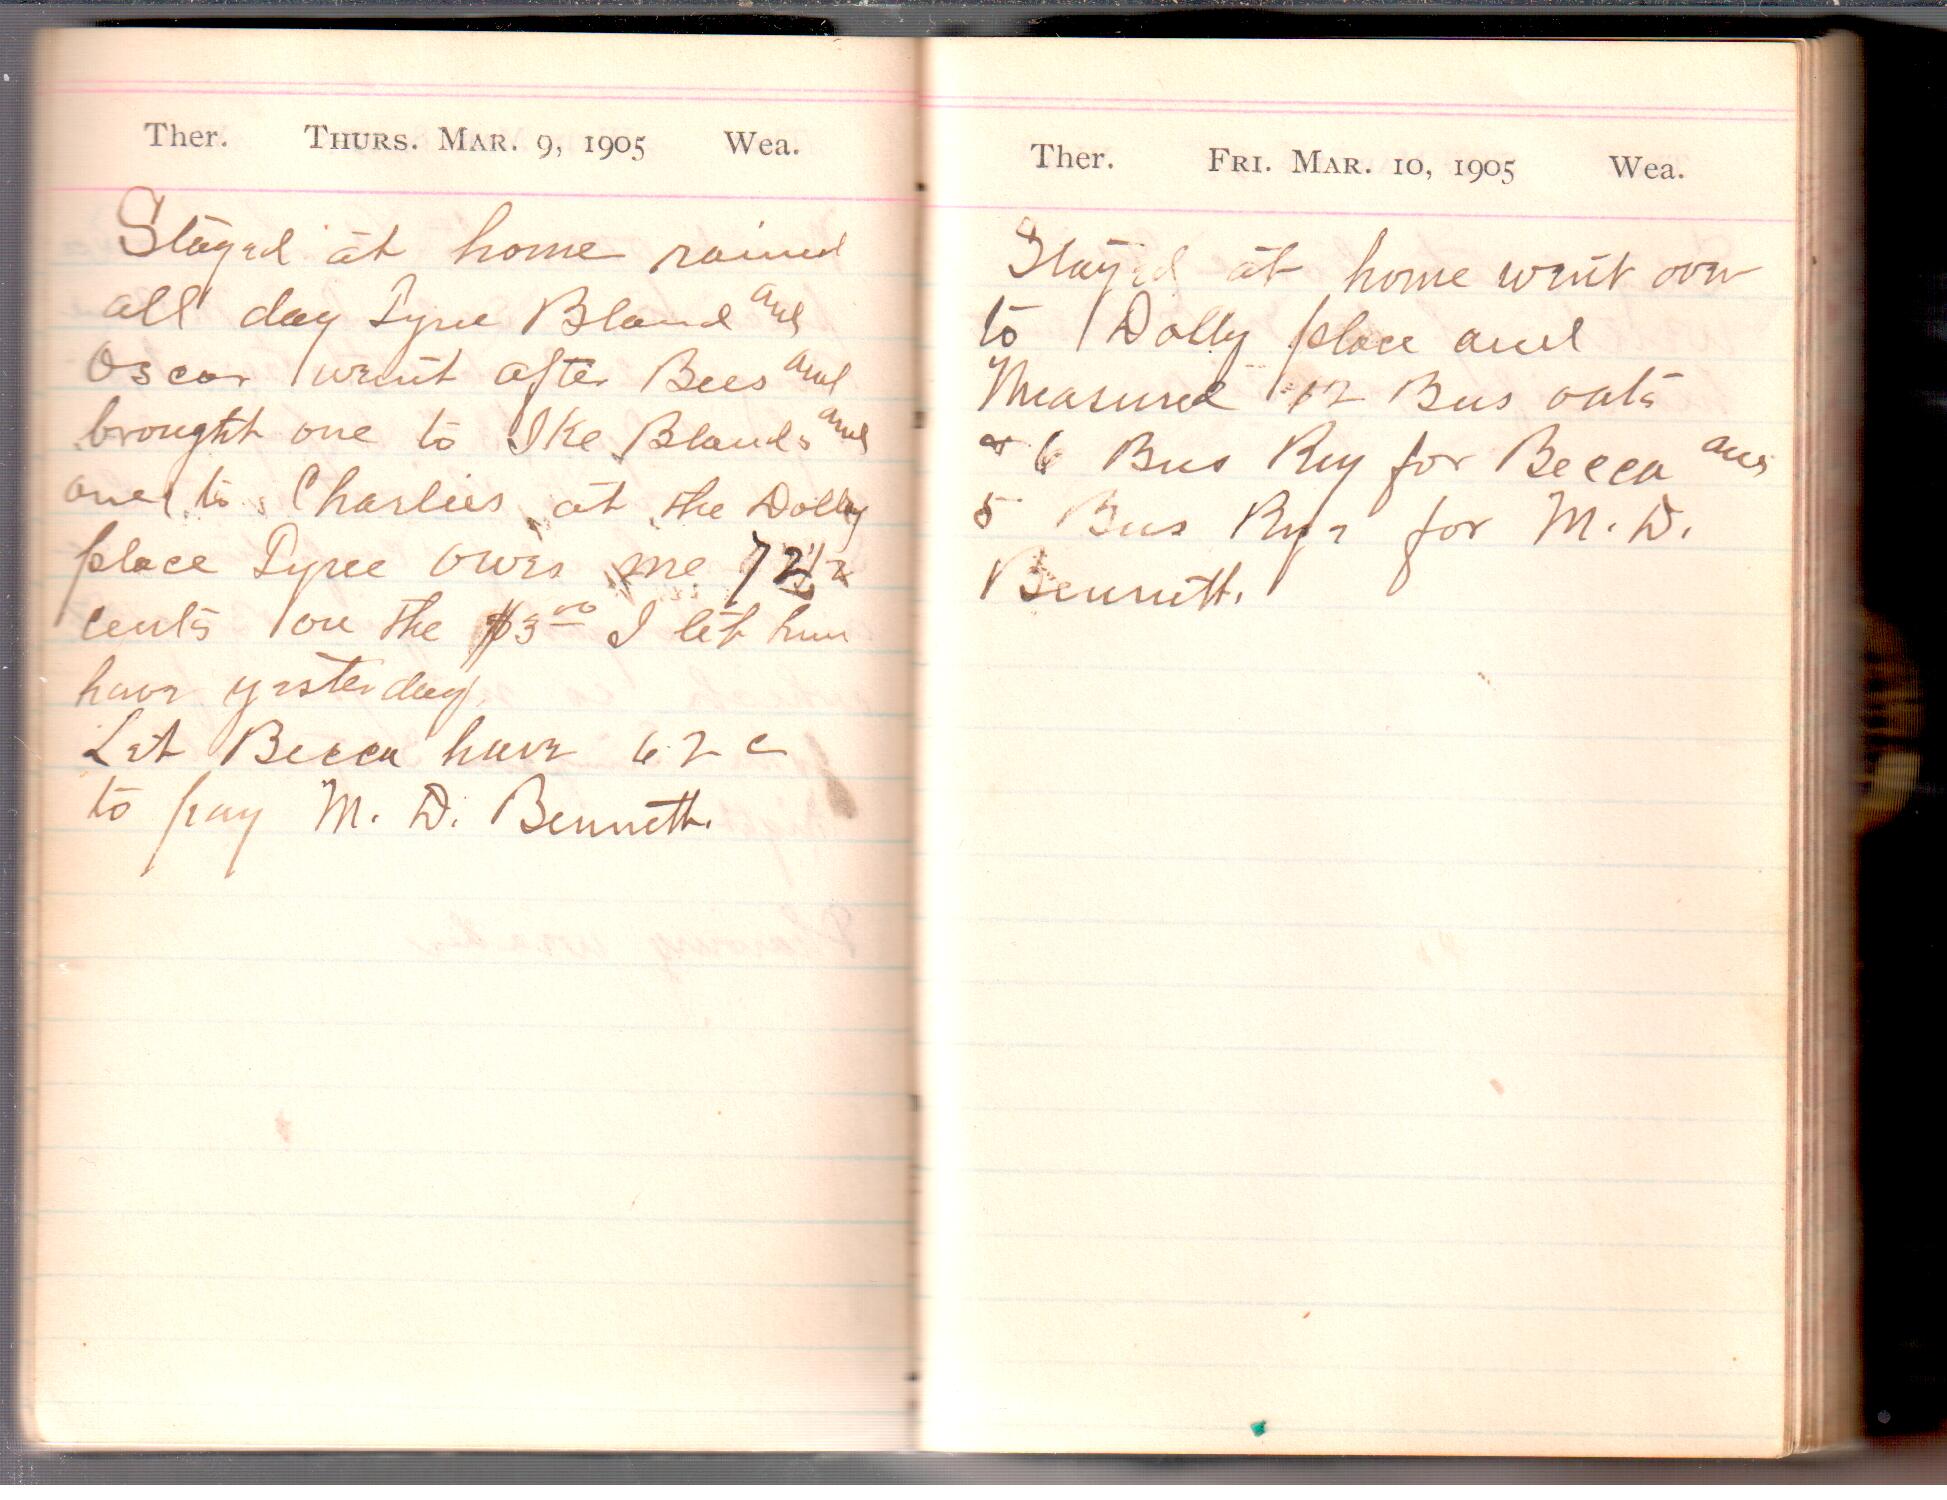 Ther. THURS. MAR. 9, 1905 Wea.
Stayed at home rained
all day Tyree Bland and
Oscar went after Bees and
brought one to Ike Blands and
one to Charlies at the Dolly
place Tyree owes me 72 1/2
cents on the $3.00 I let him
have yesterday.
Let Becca have 62 c
to pay M. D. Bennett.
Ther. FRI. MAR. 10, 1905 Wea.
Stayed at home went over
to Dolly place and
Measured 12 Bus oats
6 Bus Ry for Becca and
5 Bus Rye for M. D.
Bennett.